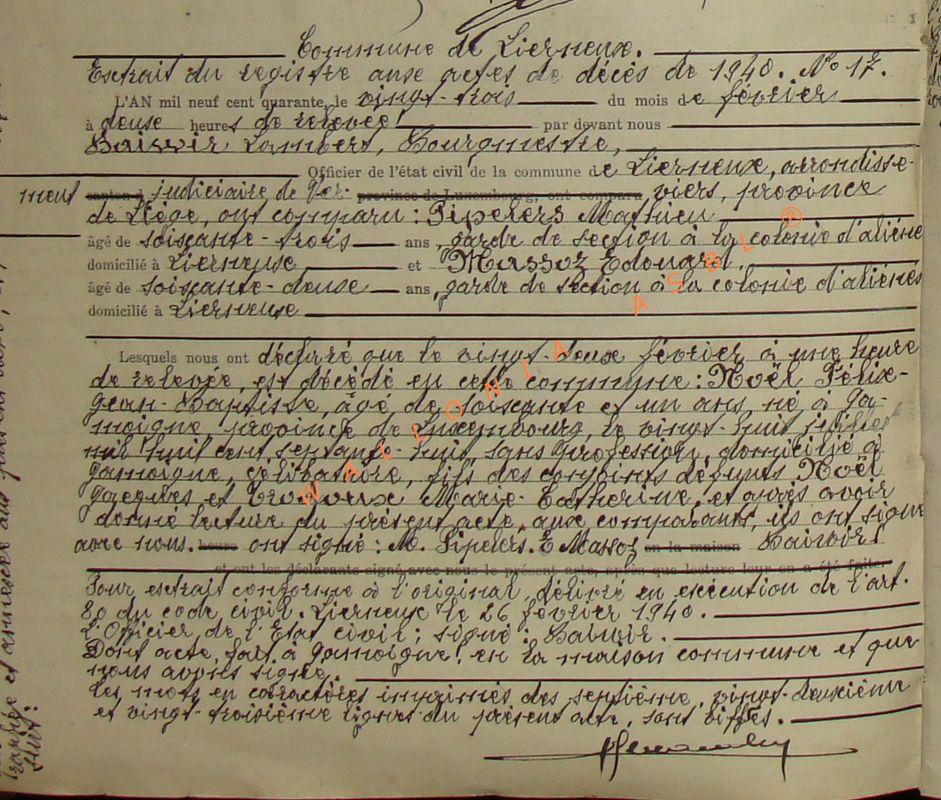 Commune de Lierneux.
Extrait du registre aux actes de décès de 1940. N° 17.
L'AN mil neuf cent quarante, le vingt-trois du mois de février
à deux heures de relevée par devant nous
Baiwir Lambert, Bourgmestre,
Officier de l'état civil de la commune de Lierneux, arrondisse-
ment canton d judiciaire de Ver- province de Luxembourg, ont comparu viers, province
de Liège, ont comparu : Pipelers Mathieu
âgé de soixante-trois ans, garde de section à la colonie d'aliéné
domicilié à Lierneux et Massoz Edouard.
âgé de soixante-deux ans, garde de section à la colonie d'aliénés
domicilié à Lierneux
Lesquels nous ont déclaré que le vingt-deux février à une heure
de relevée, est décédé en cette commune : Noël Félix-
Jean-Baptiste, âgé de soixante et un ans, né à Ja-
moigne province de Luxembourg, le vingt-huit juillet
mil huit cent septante-huit, sans profession, domicilié à
Jamoigne, célibataire, fils des conjoints défunts Noël
Jacques et Marie-Catherine, et après avoir
donné lecture du présent acte, aux comparants, ils ont signé
avec nous. heure ont signé : M. Pipelers. E Massoz en la maison Baiwir
et ont les déclarants signé avec nous le présent acte, après que lecture leur en a été faite.
Pour extrait conforme à l'original, délivré en exécution de l'art.
80 du code civil. Lierneux le 26 février 1940.
L'Officier de l'Etat civil ; signé : Baiwir.
Dont acte, fait à Jamoigne, en la maison commune et que
nous avons signé.
Les mots en caractères imprimés des septième, vingt-deuxième
et vingt-troisième lignes du présent acte, sont biffés.
WALLONIA ASBL ®